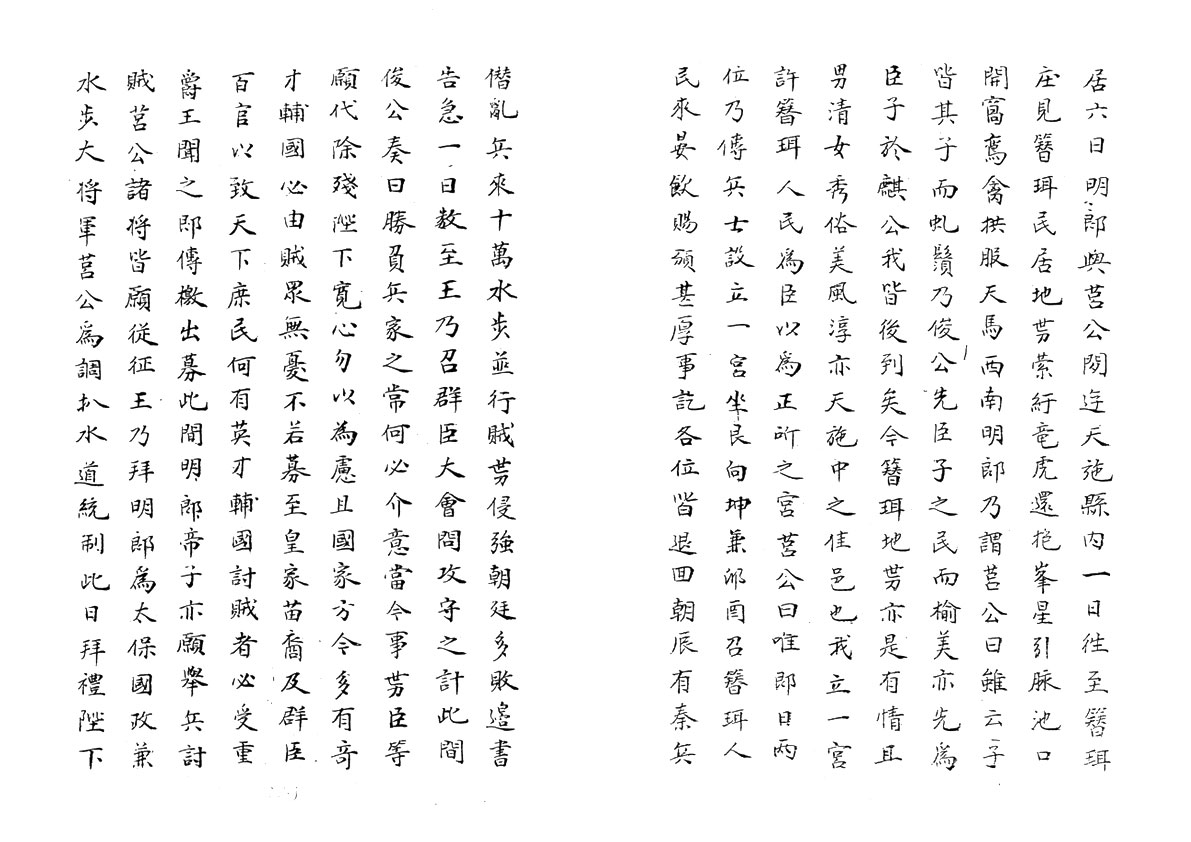 居六日明郎與莒公閱迬天施縣內一日徃至簪珥
庄見簪珥民居地势縈紆竜虎還抱峯星引脉池口
開窩鸞禽拱服天馬西南明郎乃謂莒公曰雖云子
皆其子而虬鬚乃俊公先臣子之民而榆美亦先爲
臣子於麒公我皆後到矣今簪珥地势亦是有情且
男清女秀俗美風淳亦天施中之佳邑也我立一宮
許簪珥人民爲臣以爲正所之宮莒公曰唯即日兩
位乃傳兵士設立一宮坐艮向坤兼卯酉召簪珥人
民來晏飲賜頒甚厚事訖各位皆退回朝辰有秦兵
僭亂兵來十萬水步並行賊势侵強朝廷多敗邉書
告急一日数至王乃召群臣大會問攻守之計此間
俊公奏曰勝負兵家之常何必介意當今事势臣等
願代除殘陛下寬心勿以為慮且國家方今多有竒
才輔國必由賊眾無憂不若募至皇家苗裔及群臣
百官以致天下庶民何有英才輔國討賊者必受重
爵王聞之即傳檄出募此間明郎帝子亦願舉兵討
賊莒公諸将皆願従征王乃拜明郎爲太保國政兼
水步大将軍莒公爲調扒水道統制此日拜禮陛下